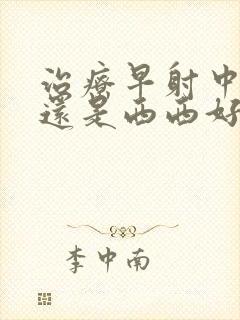 治療早射中
還是西西好
李中南